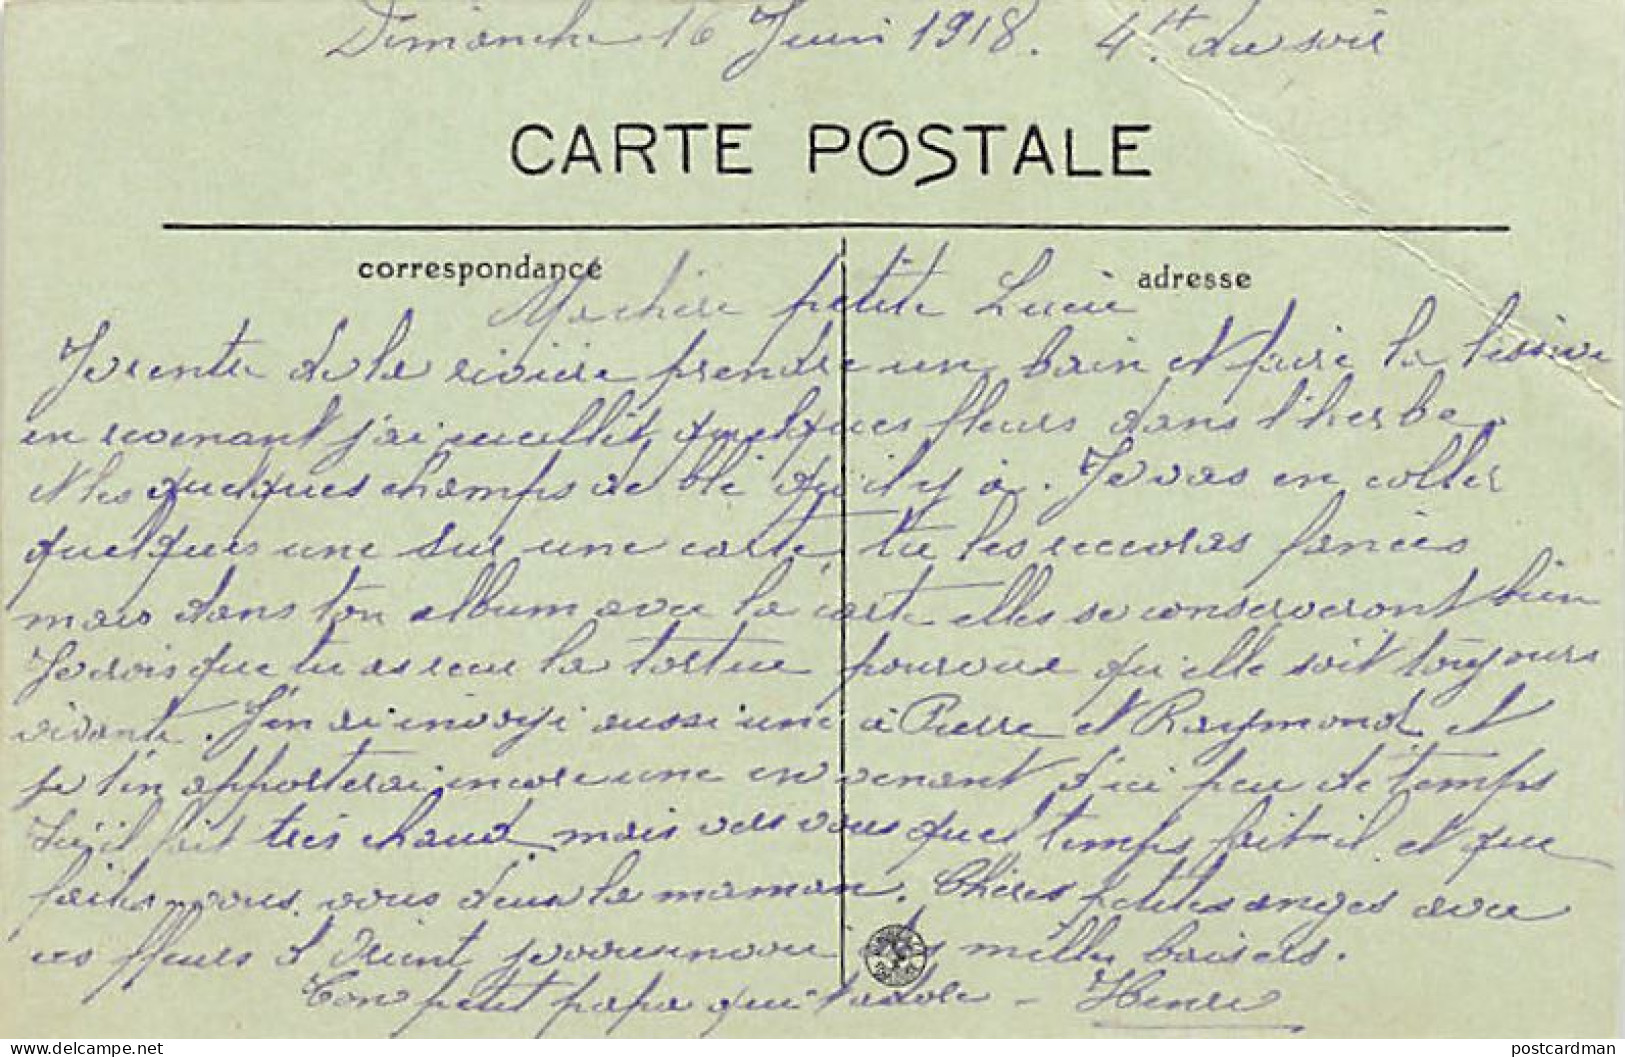 Dimanche 16 Juin 1918. 4H. du soir
CARTE POSTALE
correspondance
adresse
Ma chère petite Lucie
Je rentre de la rivière prendre un bain et faire la lessive
en revenant j'ai cueillit quelques fleurs dans l'herbe.
et les quelques champs de blé qu'il y à. Je vas en coller
quelques une sur une carte, tu les recevras fanées
mais dans ton album avec la carte elles se conserveront bien
Je crois que tu as reçu la tortue pourvue qu'elle soit toujours
vivante. J'en ai envoyé aussi une à Pierre et Raymond et
je t'en apporterai encore une en venant d'ici peu de temps
Ici il fait très chaud, mais vers vous quel temps fait-il et que
faites vous. vous deux la maman. Chères petites anges avec
ces fleurs d'Orient je vous envoie des milles baisers.
Ton petit papa qui t'adore - Henri
postcardman
https://www.delcampe.net